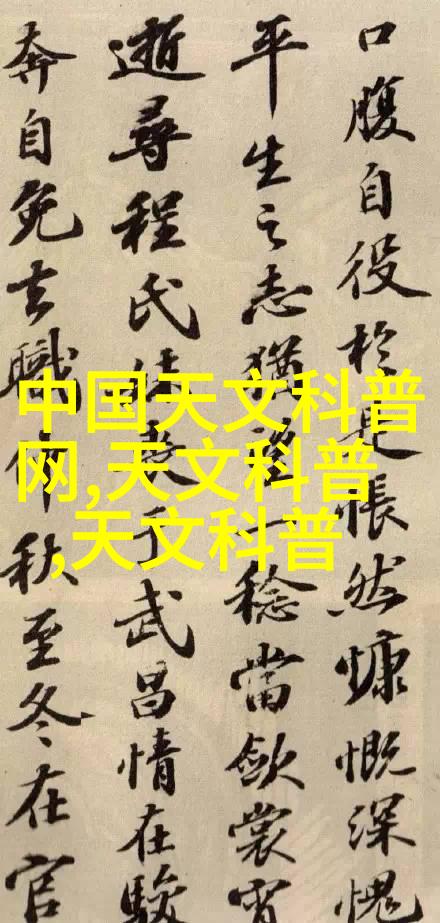 口腹自役於是悵然慷慨深愧
平生之志猶望一稔當斂裳宵
逝尋程氏妹喪于武昌情在駿
奔自免去職仲秋至冬在官
中国天文科普
网,天文科普
,天文科普